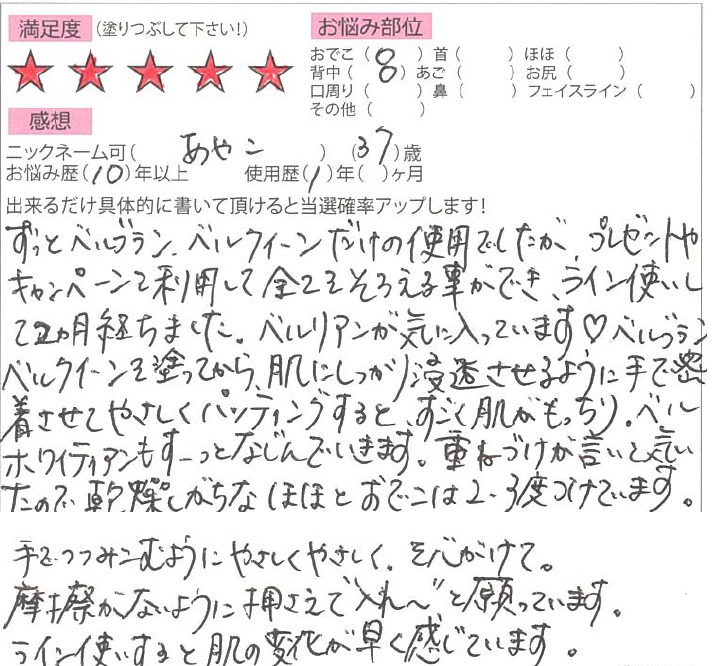 満足度 (塗りつぶして下さい!)
お悩み部位
おでこ( 8 ) 首( ) ほほ( )
背中( 8 ) あご( ) お尻( )
口周り( ) 鼻( ) フェイスライン( )
その他( )
感想
ニックネーム可( あやこ ) (37)歳
お悩み歴(10)年以上 使用歴(1)年( )ヶ月
出来るだけ具体的に書いて頂けると当選確率アップします!
ずっとベルブラン、ベルクィーンだけの使用でしたが、プレゼントや
キャンペーンで利用して全てをそろえる事ができ、ライン使いし
て2ヵ月経ちました。ベルリアンが気に入っています♡ベルブラン
ベルクイーンを塗ってから、肌にしっかり浸透させるように手で密
着させてやさしくパッティングすると、すごく肌がもっちり。ベル
ホワイティアンもすーっとなじんでいきます。重ねづけが言いと気い
たので、乾燥しがちなほほとおでこは2-3度つけています。
手でつつみこむようにやさしくやさしく、を心がけて。
摩擦がないように押さえて"入れ〜"と願っています。
ライン使いすると肌の変化が早く感じています。